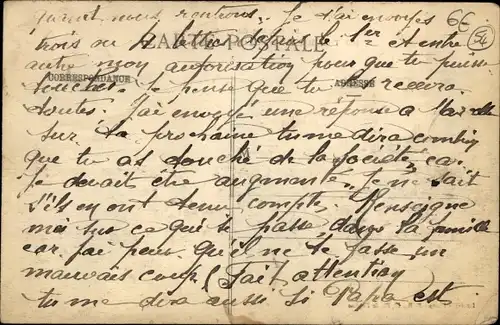 quand nous rentrons. Je t'ai envoyés 6€
trois ou lettre depuis le 1er et entre 54
CARTE POSTALE
autre mon autorisation pour que tu puisse
CORRESPONDANCE ADRESSE
toucher. Je pense que tu les recevra
toutes. J'ai envoyé une réponse a
sur ta prochaine tu me dira combien
que tu as touché de la société, car
Je devait être augmenté. Je ne sait
s'ils en ont tenu compte. Renseigne
moi sur ce qui se passe dans la famille
car j'ai peur qu'il ne te fasse un
mauvais coup (fait attention
tu me dira aussi si Papa est